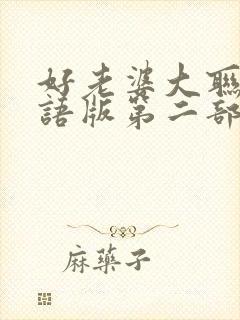 好老婆大聯
語版第二部
麻藥子